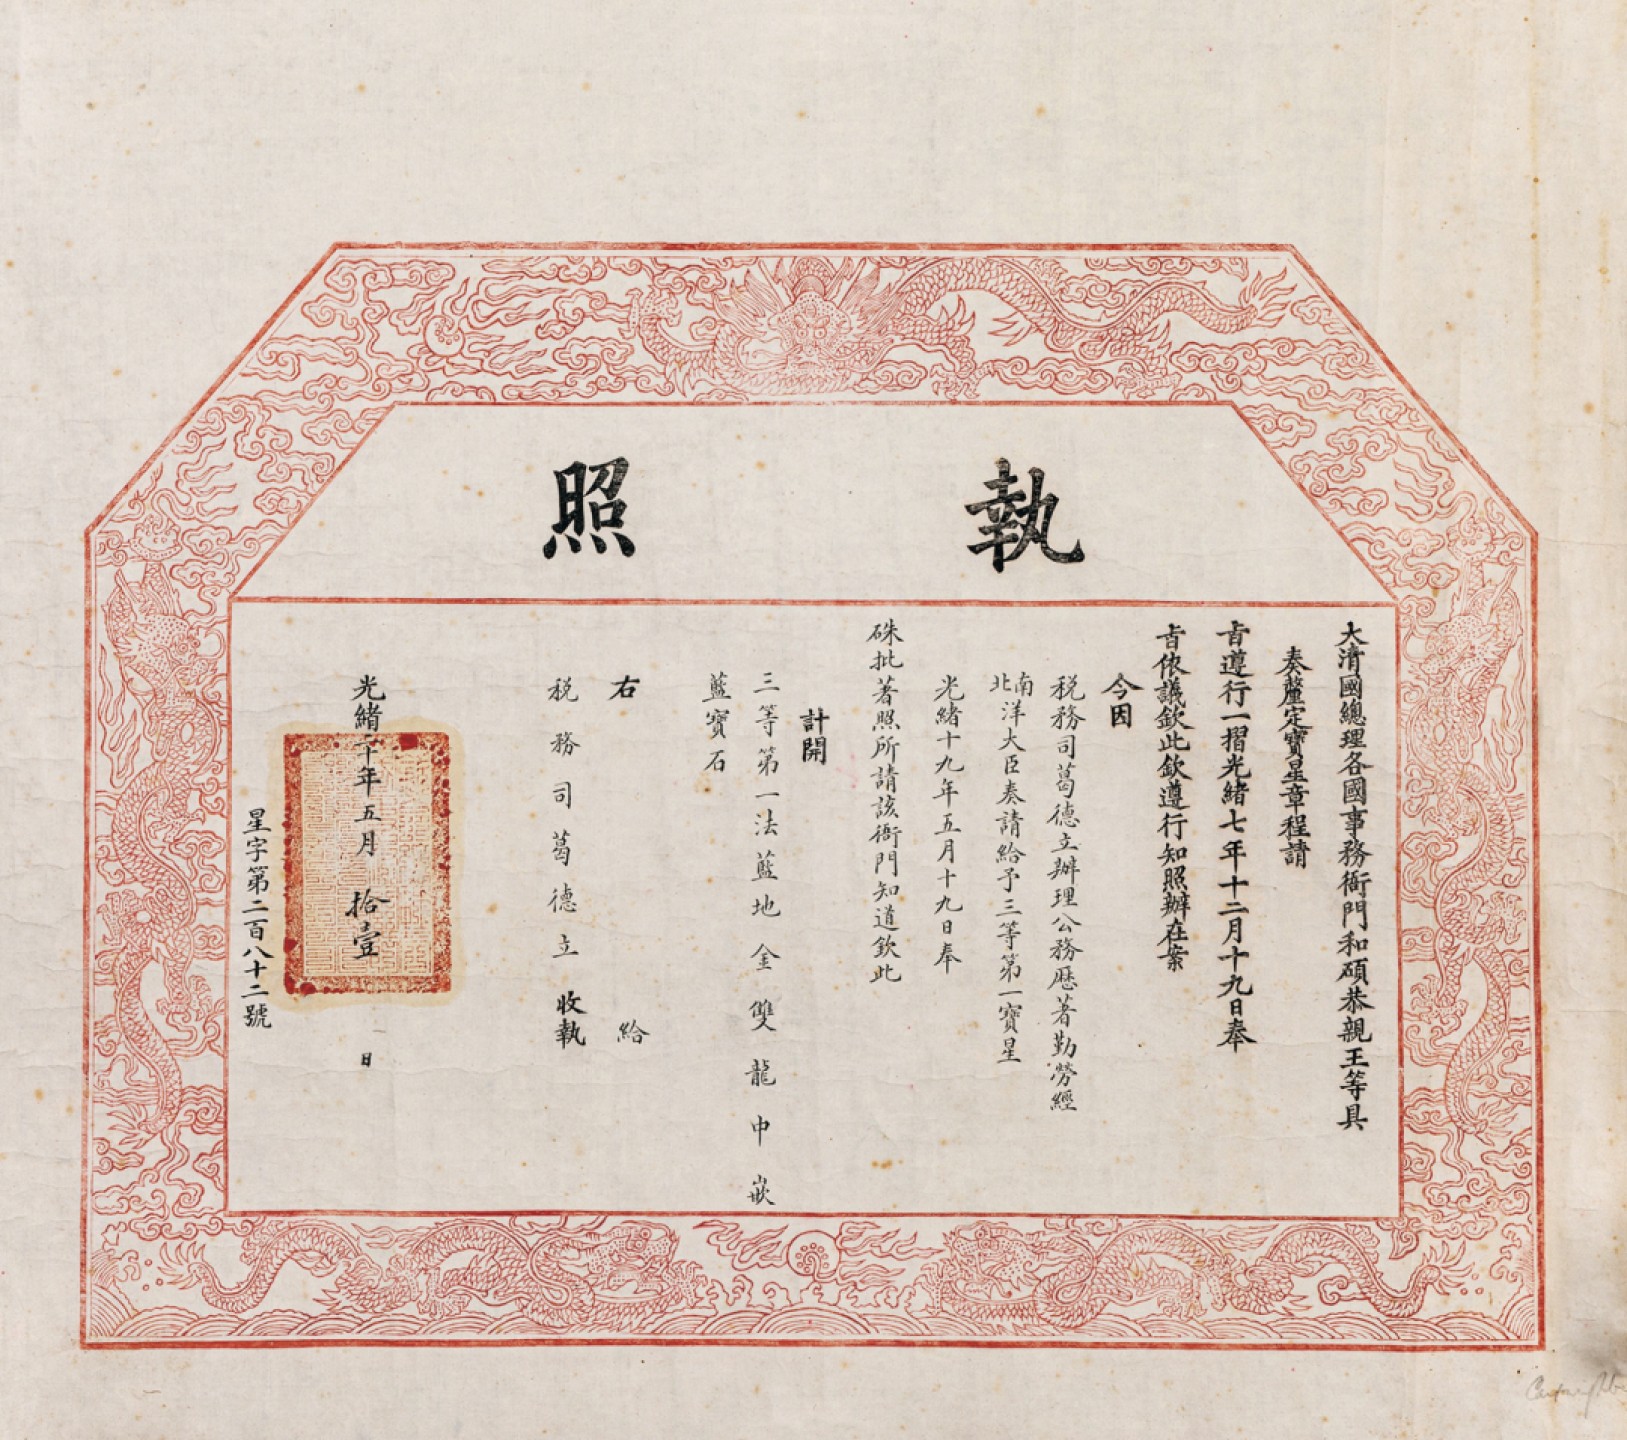 執照
大清國總理各國事務衙門和碩恭親王等具
奏釐定寶星章程請
旨遵行一摺光緒七年十二月十九日奉
旨依議欽此欽遵行知照辦在案
今因
税務司葛德立辦理公務歷著勤勞經
南北洋大臣奏請給予三等第一寶星
光緒十九年五月十九日奉
硃批著照所請該衙門知道欽此
計開
三等第一法藍地金雙龍中嵌
藍寶石
右給
税務司葛德立收執
光緒二十年五月拾壹日
星字第二百八十二號